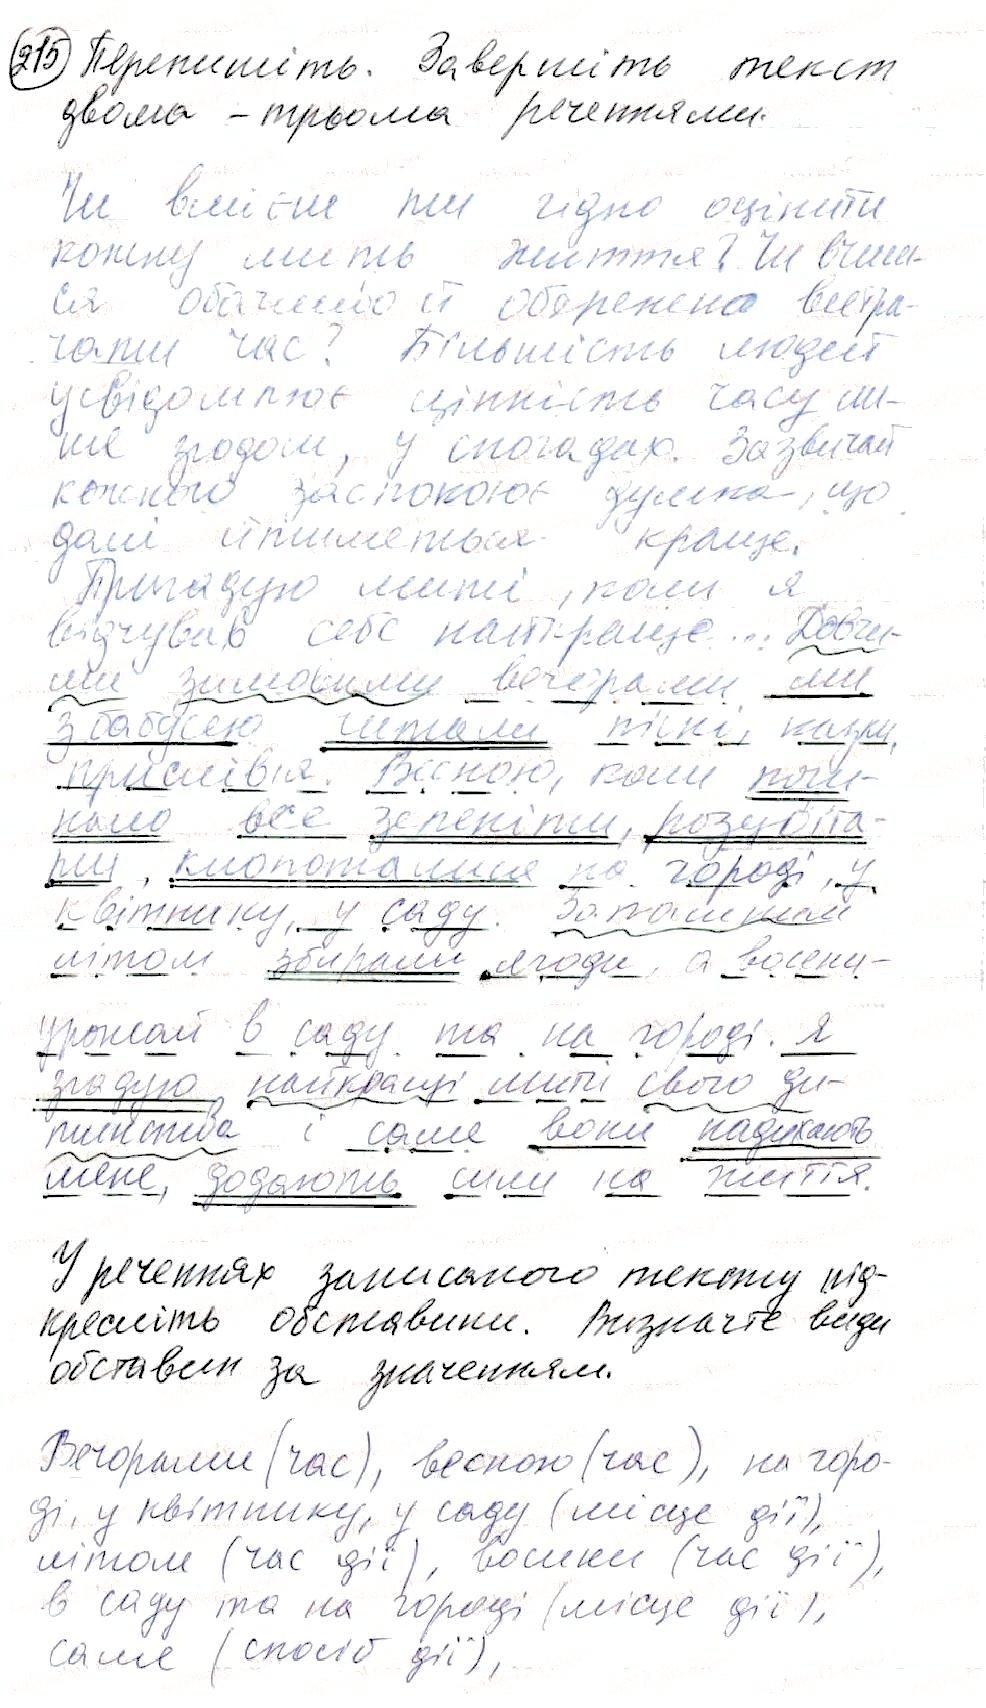 215 Перепишіть. Завершіть текст
двома - трьома реченнями.
Чи вмієш ти гідно оцінити
кожну мить життя? Чи вчиш-
ся обачливо й обережно витра-
чати час? Більшість людей
усвідомлює цінність часу ли-
ше згодом, у спогадах. Зазвичай
кожного заспокоює думка, що
далі йтиметься краще.
Пригадую миті, коли я
відчував себе найкраще... Довги-
ми зимовими вечорами ми
з бабусею читали пісні, казки,
прислів'я. Весною, коли почи-
нало все зеленіти, розцвіта-
ти, клопоталися на городі, у
квітнику, у саду. Запашним
літом збирали ягоди, а восени-
урожай в саду та на городі. Я
згадую найкращі миті свого ди-
тинства і саме вони надихають
мене, додають сили на життя.
У реченнях записаного тексту під-
кресліть обставини. Визначте види
обставин за значенням.
Вечорами (час), весною (час), на горо-
ді, у квітнику, у саду (місце дії),
літом (час дії), восени (час дії),
в саду та на городі (місце дії),
саме (спосіб дії),